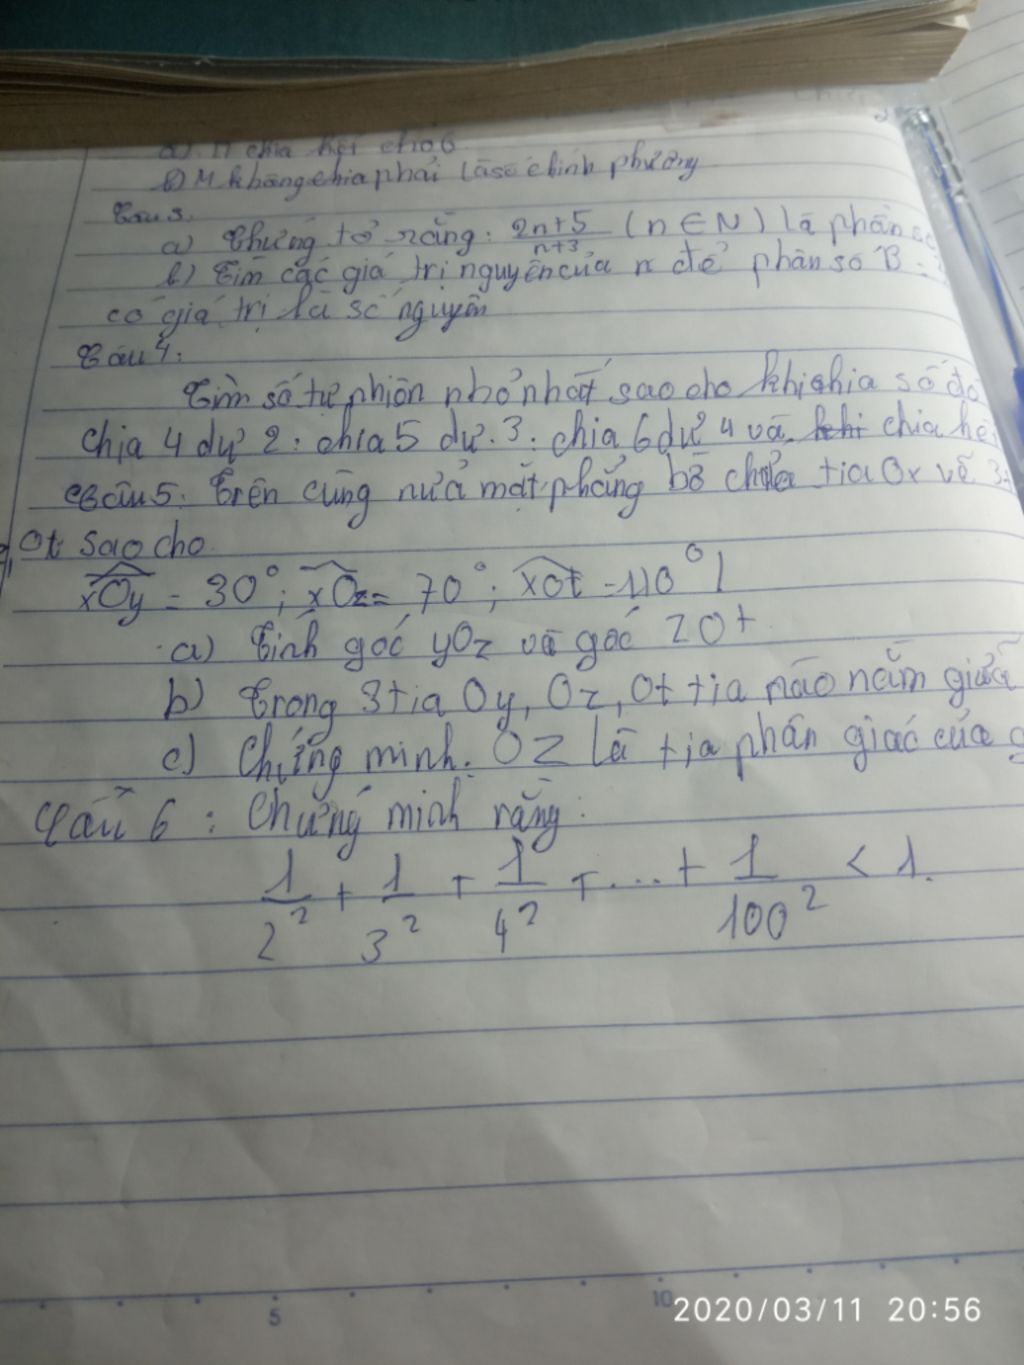 a). M chia hết cho 6
b) M không chia phải là số chính phương
Câu 3.
a) Chứng tỏ rằng: \frac{2n+5}{n+3} (n ∈ N) là phân số
b) Tìm các giá trị nguyên của n để phân số B =
có giá trị là số nguyên
Câu 4:
Tìm số tự nhiên nhỏ nhất sao cho khi chia số đó
chia 4 dư 2: chia 5 dư 3: chia 6 dư 4 và chia hết
Câu 5: Trên cùng nửa mặt phẳng bờ chứa tia Ox vẽ 3
Ot sao cho
xOy = 30°; xOz = 70°; xOt = 110°
a) Tính góc yOz và góc zOt
b) Trong 3 tia Oy, Oz, Ot tia nào nằm giữa
c) Chứng minh: Oz là tia phân giác của g
Câu 6: Chứng minh rằng:
\frac{1}{2²} + \frac{1}{3²} + \frac{1}{4²} + .... + \frac{1}{100²} < 1.
5 10
2020/03/11 20:56